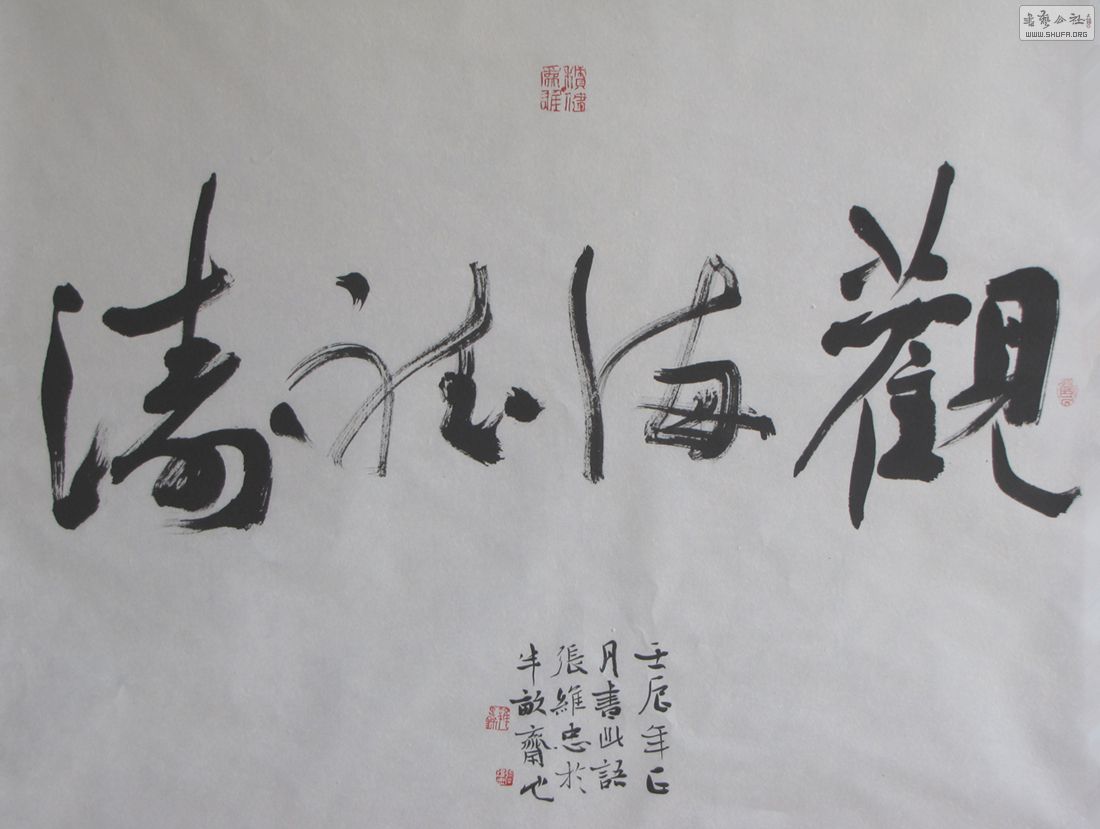 書藝公社
WWW.SHUFA.ORG
觀海聽濤
壬辰年正
月書此語
張維忠於
半畝齋也